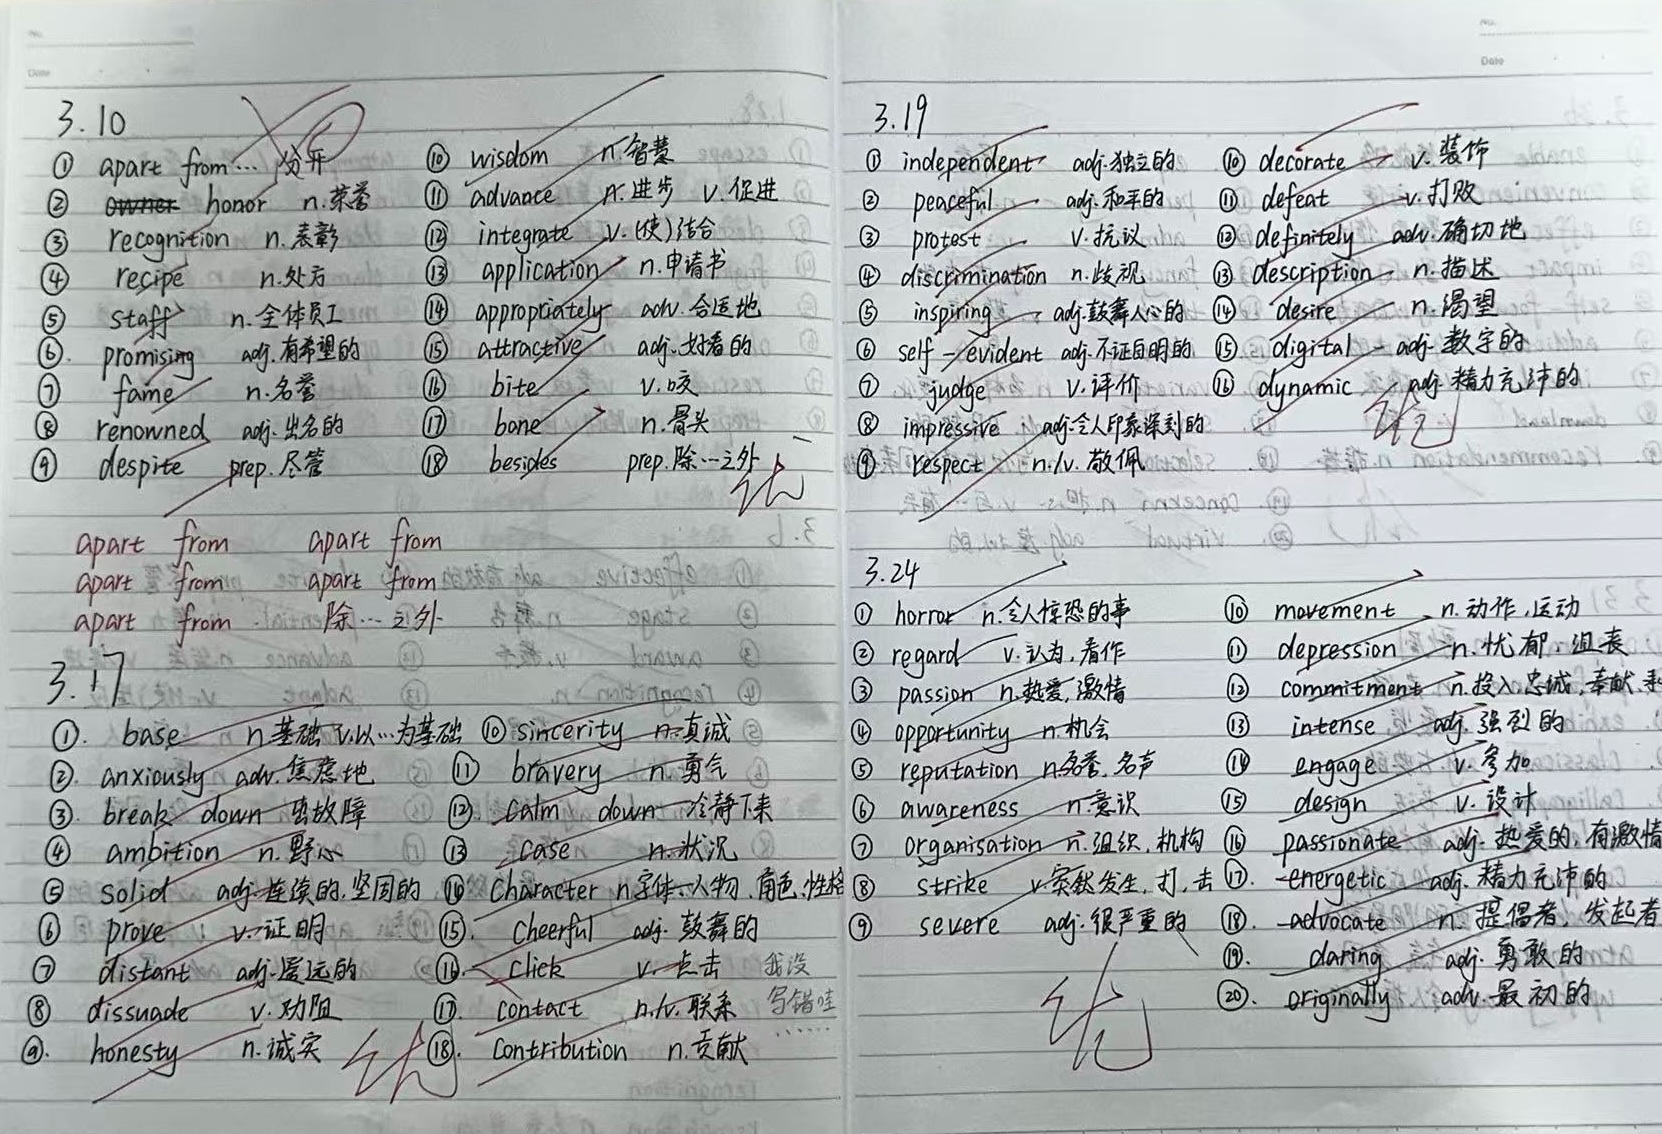 No.
Date
3.10
① apart from… 分开
② owner honor n.荣誉
③ recognition n.表彰
④ recipe n.处方
⑤ staff n.全体员工
⑥. promising adj.有希望的
⑦ fame n.名誉
⑧ renowned adj.出名的
⑨ despite prep.尽管
⑩ wisdom n.智慧
⑪ advance n.进步 v.促进
⑫ integrate v.(使)结合
⑬ application n.申请书
⑭ appropriately adv.合适地
⑮ attractive adj.好看的
⑯ bite v.咬
⑰ bone n.骨头
⑱ besides prep.除…之外
优
apart from apart from
apart from apart from
apart from 除…之外
3.17
①. base n.基础 v.以…为基础
②. anxiously adv.焦虑地
③. break down 出故障
④ ambition n.野心
⑤ solid adj.连续的,坚固的
⑥ prove v.证明
⑦ distant adj.遥远的
⑧ dissuade v.劝阻
⑨. honesty n.诚实
⑩ sincerity n.真诚
⑪ bravery n.勇气
⑫ calm down 冷静下来
⑬ case n.状况
⑭ character n.字体、人物、角色,性格
⑮. cheerful adj.鼓舞的
⑯. click v.点击
⑰. contact n./v.联系
⑱. contribution n.贡献
我没
写错哇
……
优
No.
Date
3.19
① independent adj.独立的
② peaceful adj.和平的
③ protest v.抗议
④ discrimination n.歧视
⑤ inspiring adj.鼓舞人心的
⑥ self-evident adj.不证自明的
⑦ judge v.评价
⑧ impressive adj.令人印象深刻的
⑨ respect n./v.敬佩
⑩ decorate v.装饰
⑪ defeat v.打败
⑫ definitely adv.确切地
⑬ description n.描述
⑭ desire n.渴望
⑮ digital adj.数字的
⑯ dynamic adj.精力充沛的
优
3.24
① horror n.令人惊恐的事
② regard v.认为,看作
③ passion n.热爱,激情
④ opportunity n.机会
⑤ reputation n.名誉,名声
⑥ awareness n.意识
⑦ organisation n.组织,机构
⑧ strike v.突然发生,打,击
⑨ severe adj.很严重的
⑩ movement n.动作,运动
⑪ depression n.忧郁,沮丧
⑫ commitment n.投入,忠诚,奉献,承
⑬ intense adj.强烈的
⑭ engage v.参加
⑮ design v.设计
⑯ passionate adj.热爱的,有激情
⑰. energetic adj.精力充沛的
⑱. advocate n.提倡者,发起者
⑲. daring adj.勇敢的
⑳. originally adv.最初的
优